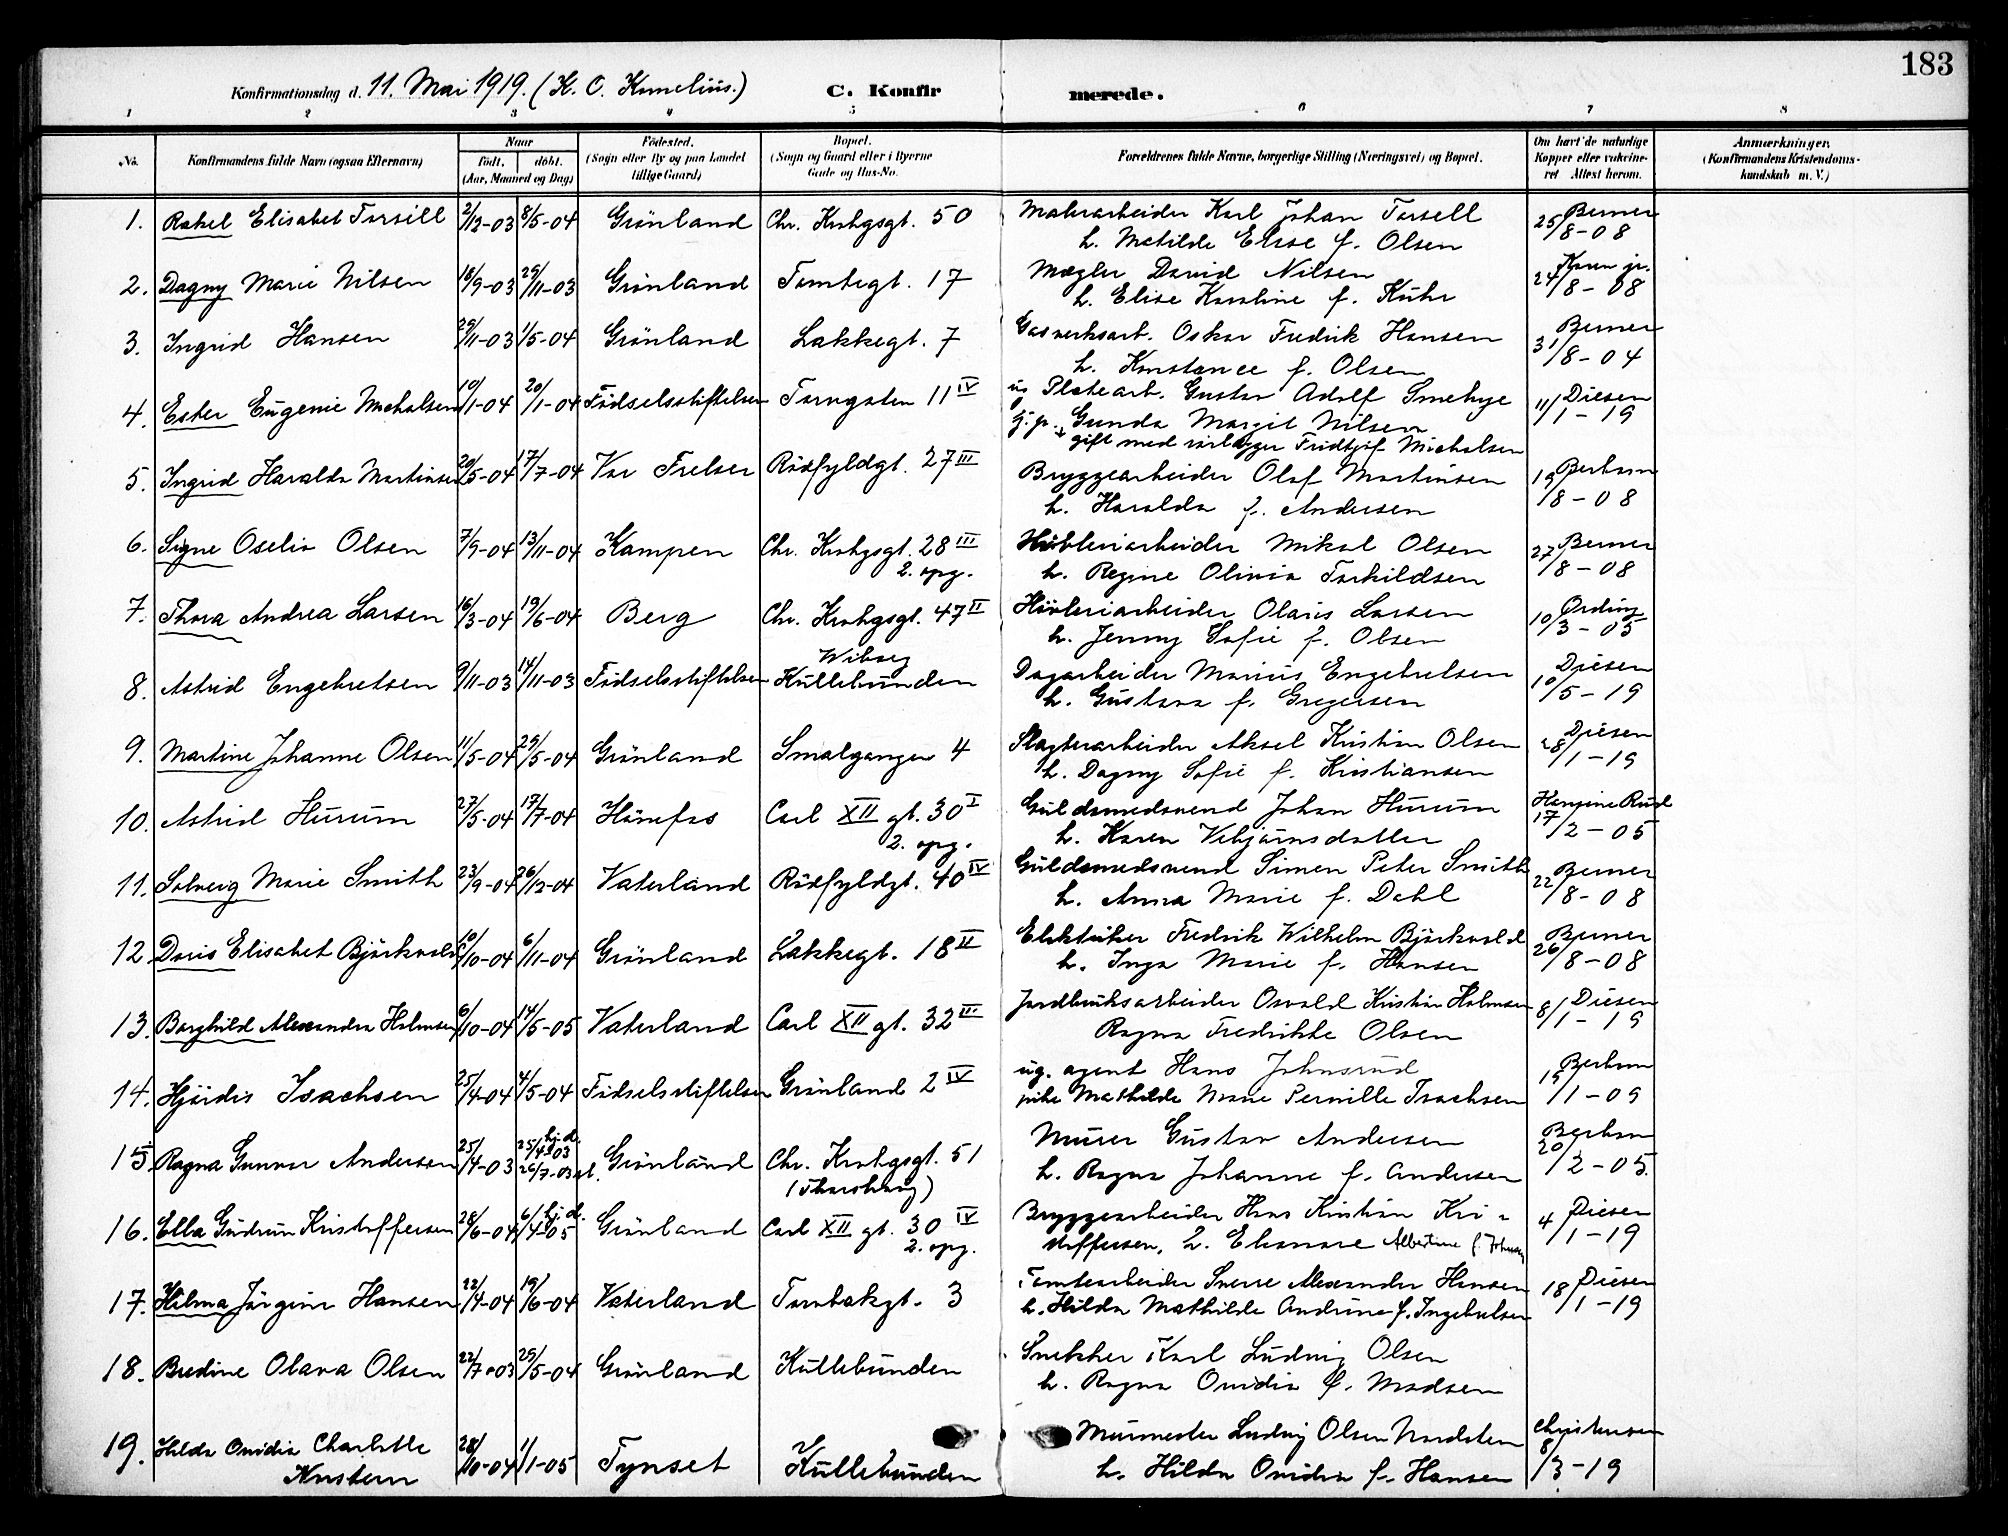 183
Konfirmationsdag d. 11. Mai 1919. (K. O. Kornelius.) C. Konfirmerede.
1 2 3 4 5 6 7 8
No. Konfirmandens fulde Navn (ogsaa Efternavn) Naar født, døbt. (Aar, Maaned og Dag) Fødested. (Sogn eller By og paa Landet tillige Gaard) Bopæl. (Sogn og Gaard eller i Byerne Gade og Hus-No. Forældrenes fulde Navne, borgerlige Stilling (Næringsvei) og Bopæl. Om havt de naturlige Kopper eller vakcineret Attest herom. Anmærkninger. (Konfirmandens Kristendomskundskab m. V.)
1. Rakel Elisabet Torsell 2/12-03 8/5-04 Grönland Chr. Krohgsgt. 50 Malerarbeider Karl Johan Torsell Berner
h. Matilde Elise f. Olsen 25/8-08
2. Dagny Marie Nilsen 18/9-03 29/11-03 Grönland Tomtegt. 17 Mægler David Nilsen
h. Elise Karoline f. Kühr 24/8-08
3. Ingrid Hansen 29/11-03 1/5-04 Grönland Lakkegt. 7 Gasverksarb. Oskar Fredrik Hansen Berner
h. Konstance f. Olsen 31/8-04
4. Ester Eugenie Micholsen 10/1-04 20/1-04 Födselsstiftelsen Torvgaten 11 IV Platearb. Gustav Adolf Smehye Diesen
Gunda Margit Nilsen 11/1-19
gift med rörlægger Fridtjof Micholsen
5. Ingrid Haralda Martinsen 20/5-04 17/7-04 Vor Frelser Rödfyldgt. 27 III Bryggearbeider Olaf Martinsen
h. Haralda f. Andersen 19/8-08
6. Signe Oselia Olsen 7/9-04 13/11-04 Kampen Chr. Krohgsgt. 28 III 2. opg. Hövleriarbeider Mikal Olsen Berner
h. Regine Olivia Torkildsen 27/8-08
7. Thora Andrea Larsen 16/3-04 19/6-04 Berg Chr. Krohgsgt. 47 II Hövleriarbeider Olaus Larsen Ording
h. Jenny Sofie f. Olsen 10/3-05
8. Astrid Engebretsen 9/11-03 14/11-03 Födselsstiftelsen Kullebunden Dagarbeider Marius Engebretsen Diesen
h. Gustava f. Gregersen 10/5-19
9. Martine Johanne Olsen 11/5-04 25/5-04 Grönland Smalgangen 4 Slagterarbeider Aksel Kristian Olsen Diesen
h. Dagny Sofie f. Kristiansen 28/1-19
10. Astrid Hurum 27/5-04 17/7-04 Hönefos Carl XII gt. 30 I 2. opg. Guldsmedsvend Johan Hurum
h. Karen Vebjörnsdatter 17/2-05
11. Solveig Marie Smith 23/9-04 26/12-04 Vaterland Rödfyldgt. 40 IV Guldsmedsvend Simen Peter Smith Berner
h. Anna Marie f. Dahl 22/8-08
12 Doris Elisabet Björkvold 10/10-04 6/11-04 Grönland Lakkegt. 18 II Elektriker Fredrik Wilhelm Björkvold Berner
h. Inga Marie f. Hansen 26/8-08
13. Borghild Alexandra Holmsen 6/10-04 14/5-05 Vaterland Carl XII gt. 32 III Jordbruksarbeider Osvald Kristian Holmsen Diesen
Ragna Fredrikke Olsen 8/1-19
14. Hjördis Isachsen 25/4-04 4/5-04 Födselsstiftelsen Grönland 2 IV ug. agent Hans Johnsrud
pike Mathilde Marie Pernille Isachsen 19/1-09
15. Ragna Gunvor Andersen 25/4-03 25/4-03 hj. d. 26/7-03 st. Grönland Chr. Krohgsgt. 51 Murer Gustav Andersen
h. Ragna Johanne f. Andersen 20/2-05
16. Ella Gudrun Kristoffersen 28/6-04 6/4-05 hj. d. Grönland Carl XII gt. 30 IV 2. opg. Bryggearbeider Hans Kristian Kri- Diesen
stoffersen, h. Elenore Albertine f. 4/1-19
17. Hilma Jörgine Hansen 22/4-04 19/6-04 Vaterland Torbakgt. 3 Tomtearbeider Sverre Alexander Hansen Diesen
h. Hilda Mathilde Andrine f. Ingebretsen 18/1-19
18. Bredine Olava Olsen 22/7-03 25/5-04 Grönland Kullebunden Snekker Karl Ludvig Olsen
h. Ragna Ovidia f. Madsen
19. Hilda Ovidia Charlotte 28/10-04 1/1-05 Tynset Kullebunden Murmester Ludvig Olsen Nordsten Christensen
h. Hilda Ovidia f. Hansen 8/3-19